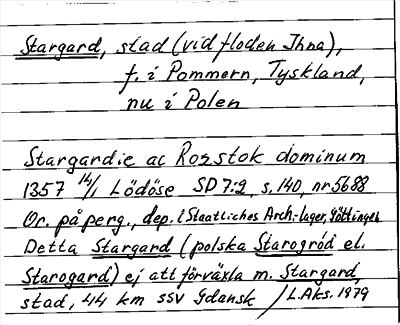 Stargard, stad (vid floden Ihna),
f. i Pommern, Tyskland,
nu i Polen
Stargardie ac Rozstok dominum
1357 14/1 Lödöse SD 7:2, s. 140, nr 5688
Or. på perg., dep. i Staatliches Arch.-lager, Göttingen
Detta Stargard (polska Starogród el.
Starogard) ej att förväxla m. Stargard,
stad, 44 km ssv Gdansk / L.Aks. 1979